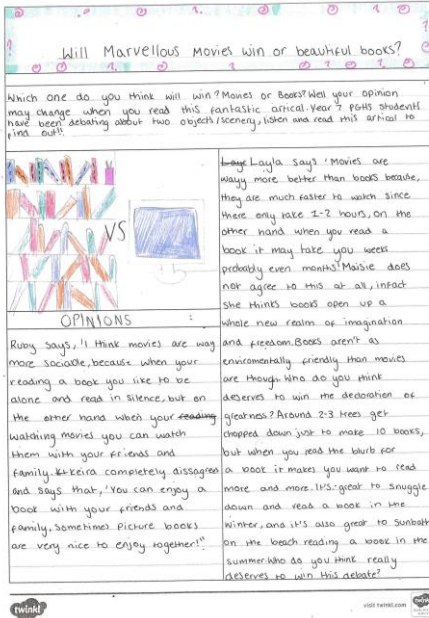 Will Marvellous Movies win or beautiful books?
Which one do you think will win? Movies or Books? Well your opinion
may change when you read this fantastic artical. Year 7 PGHS students
have been debating about two objects/scenery, listen and read this artical to
find out!!
VS
OPINIONS :
Ruby says, 'I think movies are way
more sociable, because when your
reading a book you like to be
alone and read in silence, but on
the other hand when your reading
watching movies you can watch
them with your friends and
family. Keira completely dissagrees
and says that, 'You can enjoy a
book with your friends and
family, Sometimes picture books
are very nice to enjoy together!"
Laye Layla says 'Movies are
wayy more better than books because,
they are much faster to watch since
there only take 1-2 hours, on the
other hand when you read a
book it may take you weeks
probably even months! Maisie does
not agree to this at all, infact
she thinks books open up a
whole new realm of imagination
and freedom. Books aren't as
enviromentally friendly than movies
are though. Who do you think
deserves to win the decloration of
greatness? Around 2-3 trees get
chopped down just to make 10 books,
but when you read the blurb for
a book it makes you want to read
more and more. It's great to snuggle
down and read a book in the
winter, and it's also great to Sunbath
on the beach reading a book in the
summer. Who do you think really
deserves to win this debate?
twinkl
visit twinkl.com
twinkl